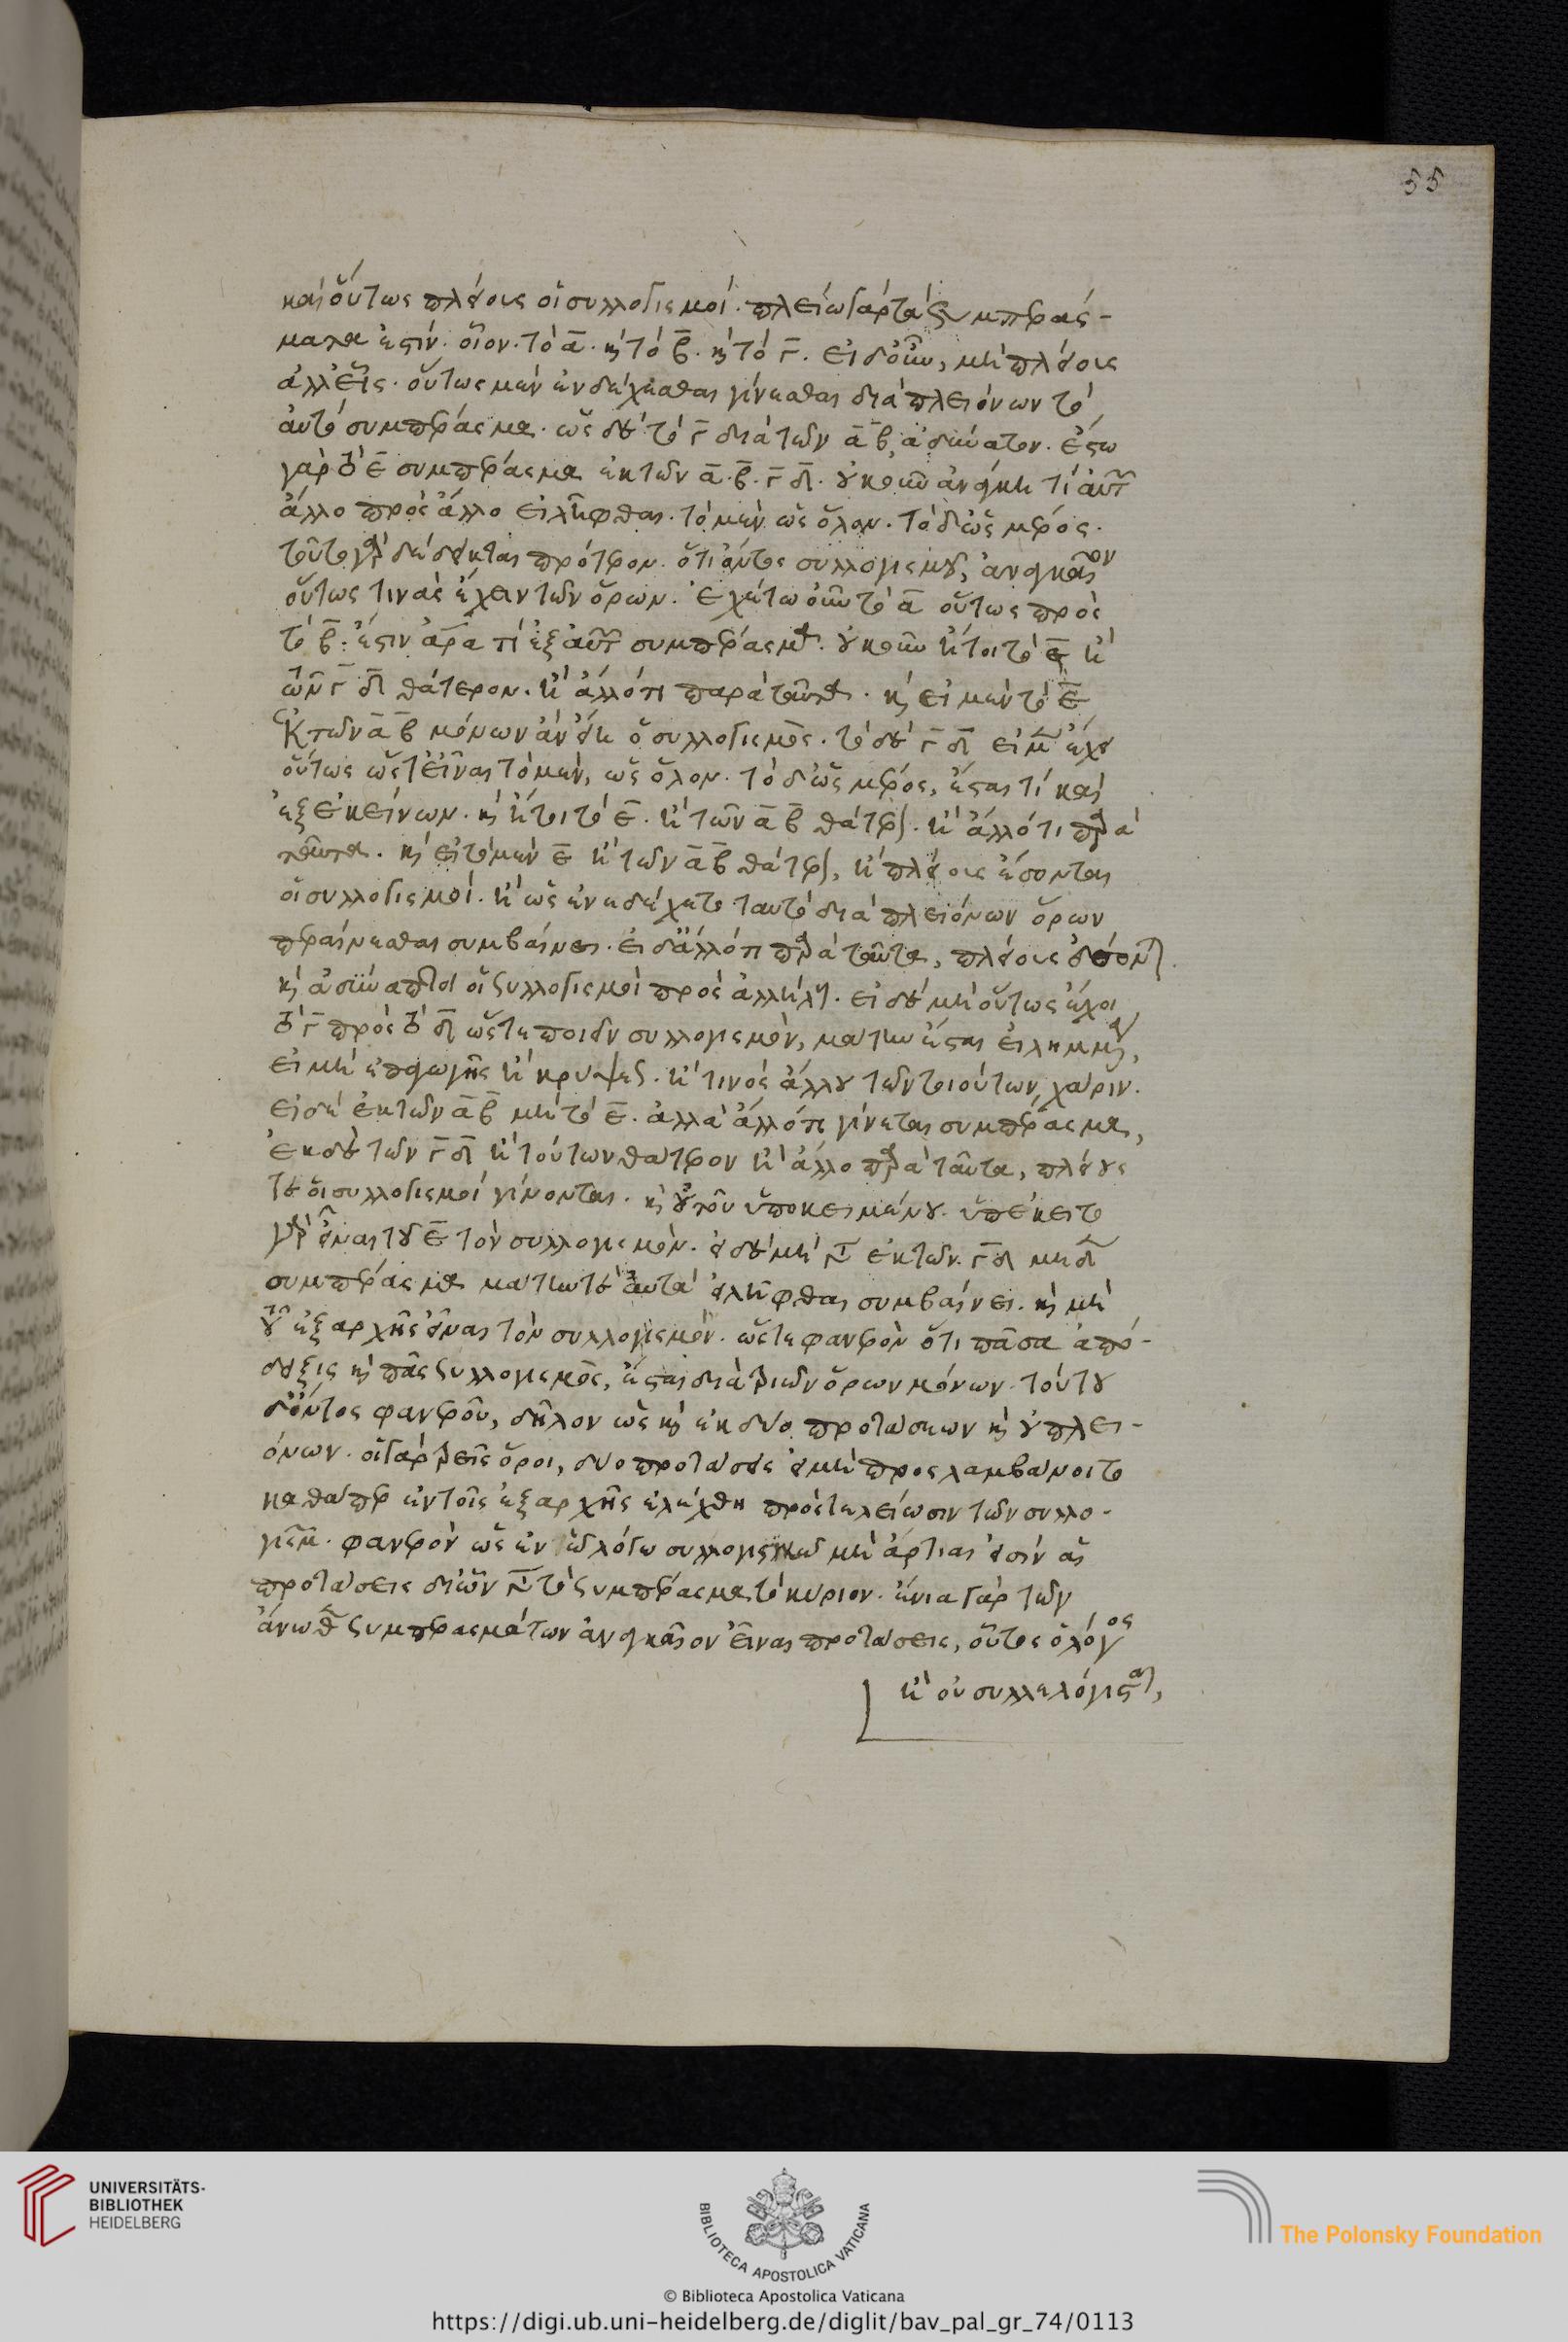 καὶ οὕτως πλείους οἱ συλλογισμοί· πλείω γὰρ τὰ συμπεράσ-
ματα ἐστίν· οἷον· τὸ α̅· κ̀ τὸ β̅· κ̀ τὸ γ̅. εἰ δ' οὖν, μὴ πλείους
ἀλλ' εἷς· οὕτως μὲν ἐνδέχεσθαι γίνεσθαι διὰ πλειόνων τὸ
αὐτὸ συμπέρασμα· ὡς δὲ τὸ γ̅ διὰ τῶν α̅ β̅, ἀδύνατον. ἔστω
γὰρ τὸ ε̅ συμπέρασμα ἐκ τῶν α̅. β̅. γ̅ δ̅. οὐκοῦν ἀνάγκη τὶ αὐτῶν
ἄλλο πρὸς ἄλλο εἰλῆφθαι· τὸ μὲν ὡς ὅλον. τὸ δ' ὡς μέρος.
τοῦτο γὰρ δέδεικται πρότερον. ὅτι ὄντος συλλογισμοῦ, ἀναγκαῖον
οὕτως τινὰς ἔχειν τῶν ὅρων. ἐχέτω οὖν τὸ α̅ οὕτως πρὸς
τὸ β̅. ἔστιν ἄρα τὶ ἐξ αὐτῶν συμπέρασμα. οὐκοῦν ἤτοι τὸ ε̅ ἢ
τῶν γ̅ δ̅ θάτερον. ἢ ἄλλό τι παρὰ ταῦτα. κ̀ εἰ μὲν τὸ ε̅
ἐκ τῶν α̅ β̅ μόνων ἂν εἴη ὁ συλλογισμός. τὸ δὲ γ̅ δ̅ εἰ μὲν ἔχει
οὕτως ὥστ' εἶναι τὸ μὲν, ὡς ὅλον. τὸ δ' ὡς μέρος, ἔσται τὶ καὶ
ἐξ ἐκείνων. κ̀ ἤτοι τὸ ε̅. ἢ τῶν α̅ β̅ θάτερον. ἢ ἄλλό τι παρὰ
ταῦτα. κ̀ εἰ τὸ μὲν ε̅ ἢ τῶν α̅ β̅ θάτερον, ἢ πλείους ἔσονται
οἱ συλλογισμοί. ἢ ὡς ἐνεδέχετο ταυτὸ διὰ πλειόνων ὅρων
περαίνεσθαι συμβαίνει. εἰ δ' ἄλλό τι παρὰ ταῦτα, πλείους ἔσονται
κ̀ ἀσύναπτοι οἱ συλλογισμοὶ πρὸς ἀλλήλους. εἰ δὲ μὴ οὕτως ἔχοι
τὸ γ̅ πρὸς τὸ δ̅ ὥστε ποιεῖν συλλογισμὸν, μάτην ἔσται εἰλημμένα,
εἰ μὴ ἐπαγωγῆς ἢ κρύψεως. ἢ τινὸς ἄλλου τῶν τοιούτων χάριν.
εἰ δὲ ἐκ τῶν α̅ β̅ μὴ τὸ ε̅. ἀλλὰ ἄλλό τι γίνεται συμπέρασμα,
ἐκ δὲ τῶν γ̅ δ̅ ἢ τούτων θάτερον ἢ ἄλλο παρὰ ταῦτα, πλείους
τε οἱ συλλογισμοὶ γίνονται. κ̀ οὐ τοῦ ὑποκειμένου. ὑπέκειτο
γὰρ εἶναι τοῦ ε̅ τὸν συλλογισμόν. εἰ δὲ μὴ γίνεται ἐκ τῶν γ̅ δ̅ μηδὲν
συμπέρασμα μάτην τε αὐτὰ εἰλῆφθαι συμβαίνει. κ̀ μὴ
τοῦ ἐξ ἀρχῆς εἶναι τὸν συλλογισμόν. ὥστε φανερὸν ὅτι πᾶσα ἀπό-
δειξις κ̀ πᾶς συλλογισμὸς, ἔσται διὰ τριῶν ὅρων μόνων. τούτου
δ' ὄντος φανεροῦ, δῆλον ὡς κ̀ ἐκ δύο προτάσεων κ̀ οὐ πλει-
όνων. οἱ γὰρ τρεῖς ὅροι, δύο προτάσεις εἰ μὴ προσλαμβάνοιτο
καθάπερ ἐν τοῖς ἐξ ἀρχῆς ἐλέχθη πρὸς τελείωσιν τῶν συλλο-
γισμῶν. φανερὸν ὡς ἐν ᾧ λόγῳ συλλογιστικῷ μὴ ἄρτιαι εἰσὶν αἱ
προτάσεις δι' ὧν γίνεται τὸ συμπέρασμα τὸ κύριον. ἔνια γὰρ τῶν
ἄνωθεν συμπερασμάτων ἀναγκαῖον εἶναι προτάσεις, οὗτος ὁ λόγος
ἢ οὐ συλλελόγισται,
55
UNIVERSITÄTS-
BIBLIOTHEK
HEIDELBERG
BIBLIOTECA APOSTOLICA VATICANA
The Polonsky Foundation
© Biblioteca Apostolica Vaticana
https://digi.ub.uni-heidelberg.de/diglit/bav_pal_gr_74/0113